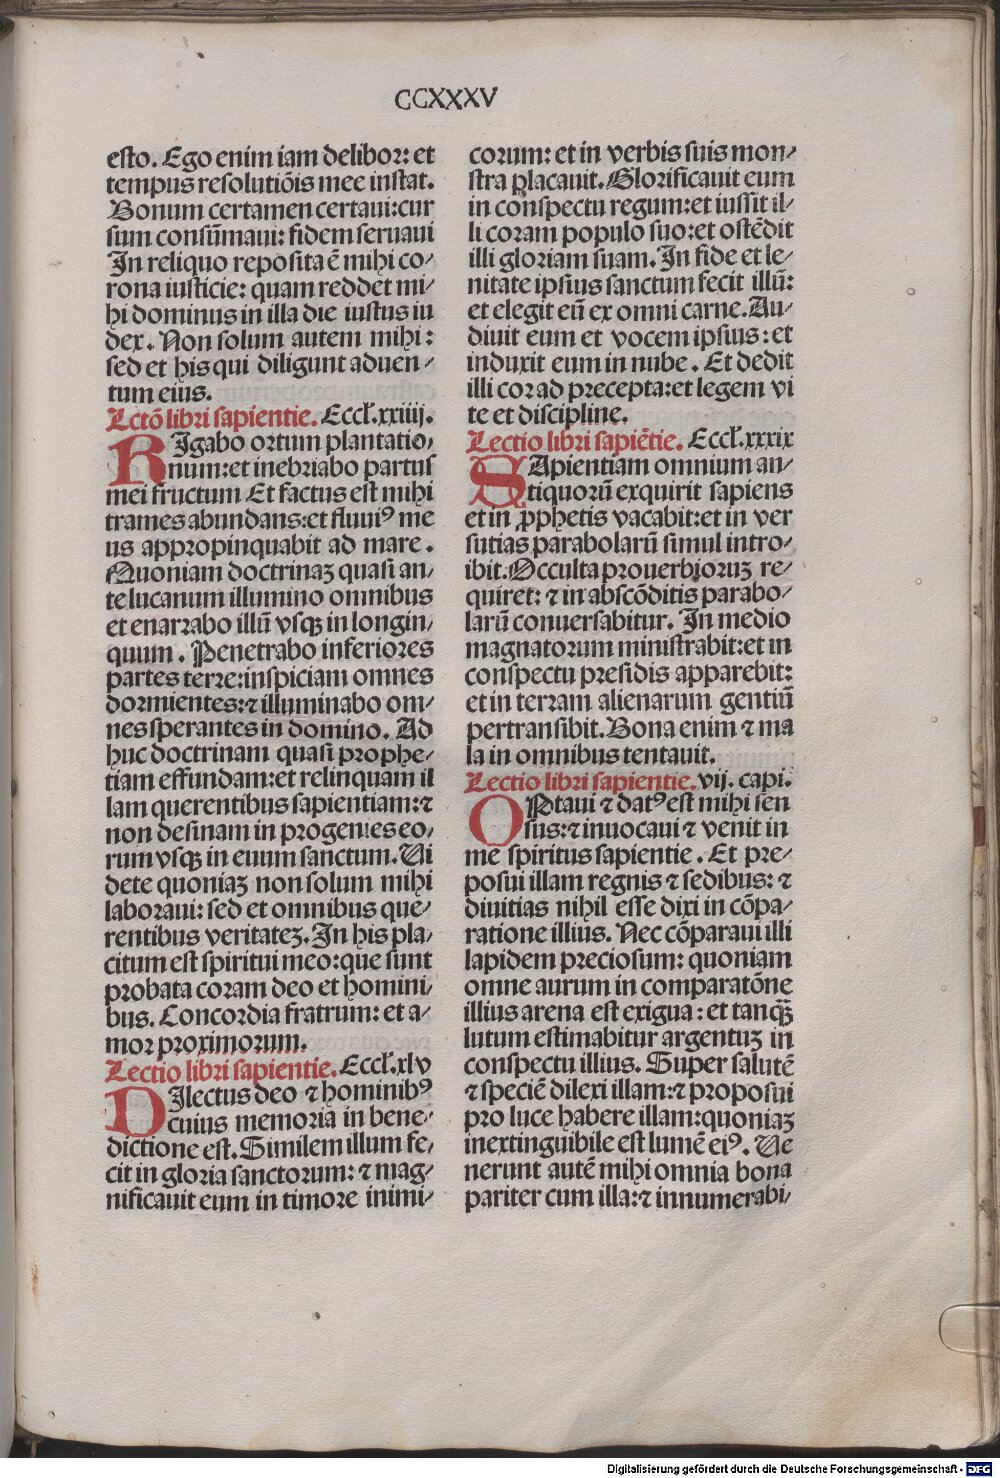 CCXXXV
esto. Ego enim iam delibor: et
tempus resolutiōis mee instat.
Bonum certamen certaui:cur
sum consūmaui: fidem seruaui
In reliquo reposita ē mihi co/
rona iusticie: quam reddet mi/
hi dominus in illa die iustus iu
dex. Non solum autem mihi:
sed et his qui diligunt aduen/
tum eius.
Lctō libri sapientie. Eccł.xxiiij.
RIgabo ortum plantatio/
num:et inebriabo partus
mei fructum Et factus est mihi
trames abundans:et fluuiꝰ me
us appropinquabit ad mare.
Quoniam doctrinaꝫ quasi an/
telucanum illumino omnibus
et enarrabo illū vsqꝫ in longin/
quum. Penetrabo inferiores
partes terre:inspiciam omnes
dormientes:⁊ illuminabo om/
nes sperantes in domino. Ad
huc doctrinam quasi prophe/
tiam effundam:et relinquam il
lam querentibus sapientiam:⁊
non desinam in progenies eo/
rum vsqꝫ in euum sanctum. Ui
dete quoniaꝫ non solum mihi
laboraui: sed et omnibus que/
rentibus veritateꝫ. In his pla/
citum est spiritui meo:que sunt
probata coram deo et homini/
bus. Concordia fratrum: et a/
mor proximorum.
Lectio libri sapientie. Eccł.xlv
DIlectus deo ⁊ hominibꝰ
cuius memoria in bene/
dictione est. Similem illum fe/
cit in gloria sanctorum: ⁊ mag/
nificauit eum in timore inimi/
corum: et in verbis suis mon/
stra placauit. Glorificauit eum
in conspectu regum:et iussit il/
li coram populo suo:et ostēdit
illi gloriam suam. In fide et le/
nitate ipsius sanctum fecit illū:
et elegit eū ex omni carne. Au/
diuit eum et vocem ipsius: et
induxit eum in nube. Et dedit
illi cor ad precepta:et legem vi
te et discipline.
Lectio libri sapiētie. Eccł.xxxix
SApientiam omnium an/
tiquorū exquirit sapiens
et in ꝓphetis vacabit:et in ver
sutias parabolarū simul intro/
ibit. Occulta prouerbioruꝫ re/
quiret: ⁊ in abscōditis parabo/
larū conuersabitur. In medio
magnatorum ministrabit:et in
conspectu presidis apparebit:
et in terram alienarum gentiū
pertransibit. Bona enim ⁊ ma
la in omnibus tentauit.
Lectio libri sapientie. vij. capi.
OPtaui ⁊ datꝰ est mihi sen
sus:⁊ inuocaui ⁊ venit in
me spiritus sapientie. Et pre/
posui illam regnis ⁊ sedibus: ⁊
diuitias nihil esse dixi in cōpa/
ratione illius. Nec cōparaui illi
lapidem preciosum: quoniam
omne aurum in comparatōne
illius arena est exigua: et tanqꝫ̄
lutum estimabitur argentuꝫ in
conspectu illius. Super salutē
⁊ speciē dilexi illam:⁊ proposui
pro luce habere illam:quoniaꝫ
inextinguibile est lumē eiꝰ. Ue
nerunt autē mihi omnia bona
pariter cum illa:⁊ innumerabi/
Digitalisierung gefördert durch die Deutsche Forschungsgemeinschaft - DFG